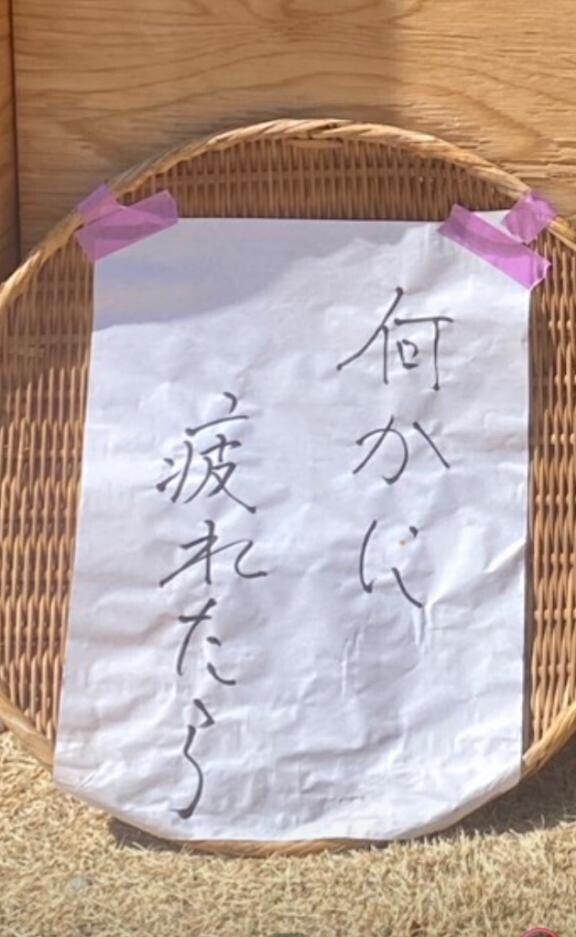 何かに
疲れたら